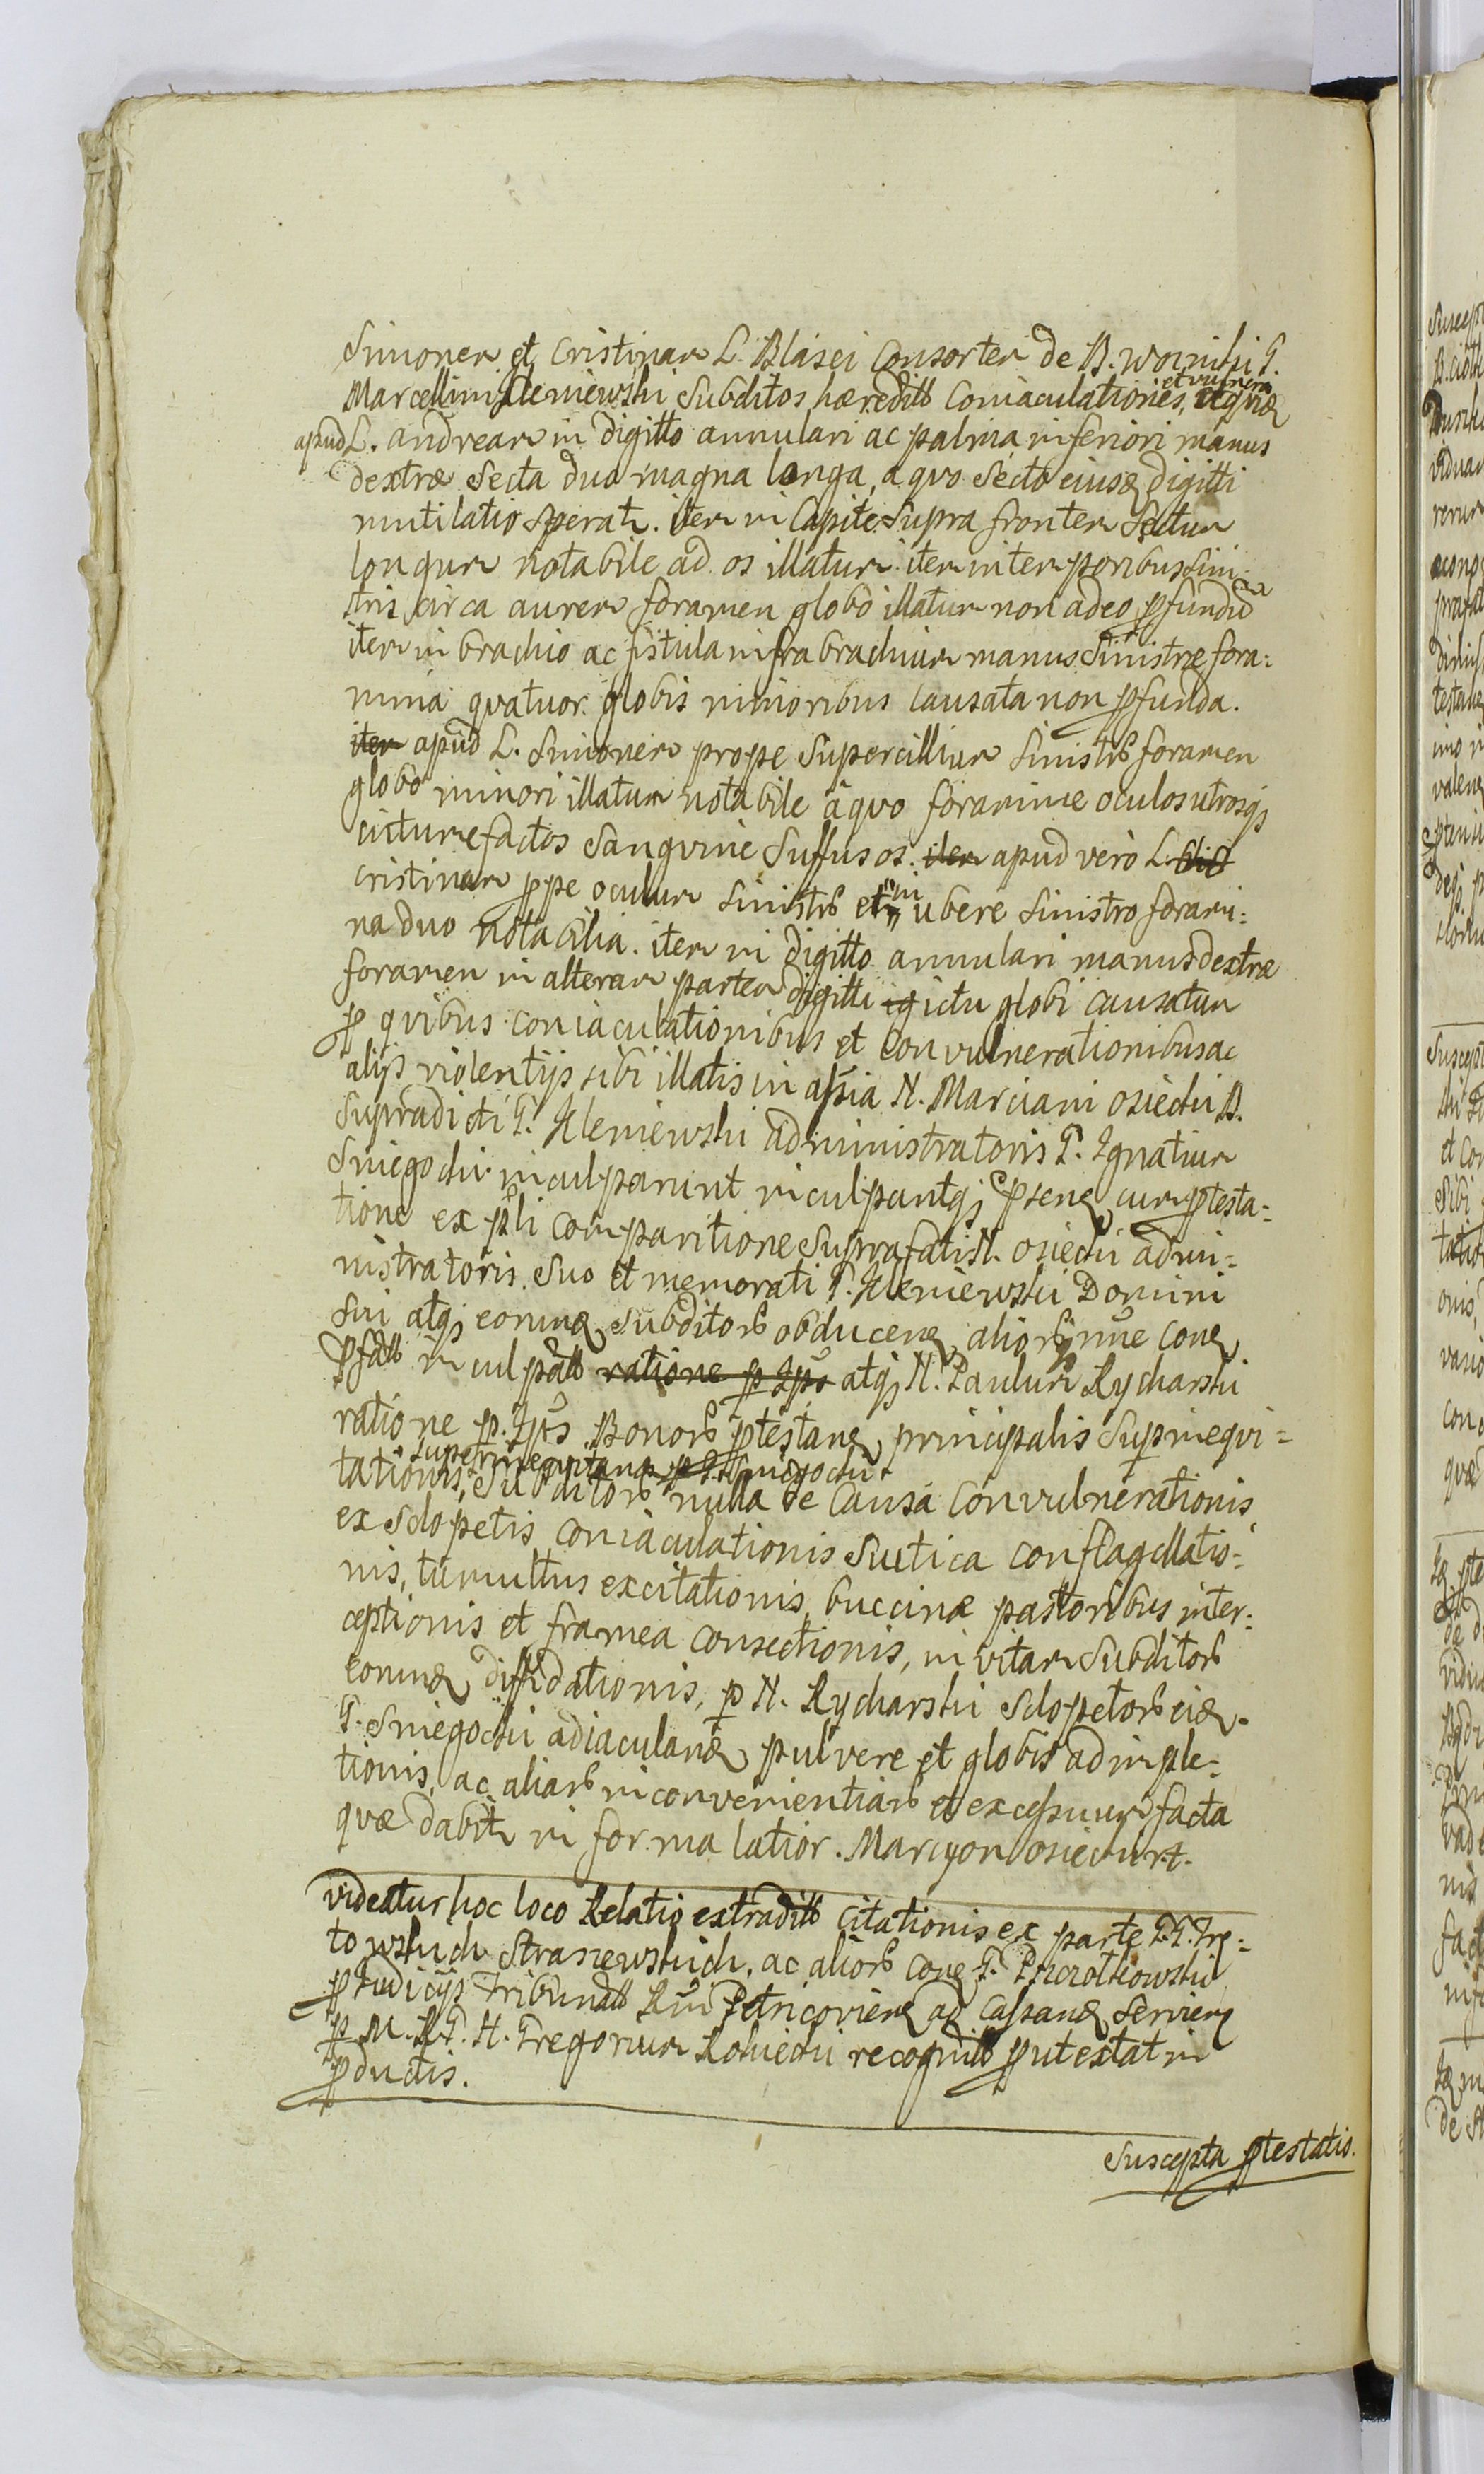 Simonem et Cristinam L. Blasei Consortem de B. Woiniki G.
Marcellini Kleniewski Subditos hæredit͞t Coniaculationes, et vulnera
apud L. andream in digitto annulari ac palma inferiori manus
dextræ Secta duo magna longa, a quo Secto eiusꝗ digitti
mutilatio Sperat͛. item in Capite Supra frontem Sectum
longum notabile ad os illatum. item in temporibus Sini-
stris circa aurem foramen globo illatum non adeo ꝓfundũ
item in brachio ac fistula infra brachium manus Sinistræ fora=
mina quatuor globis minoribus Causata non ꝓfunda.
item apud L. Simonem prope Supercillium Sinistrꝭ foramen
globo minori illatum notabile a quo foramine oculos utrosqꝫ
cictumefactos Sanguine Suffusos. item apud vero L.
Cristinam ꝓpe oculum Sinistrꝭ et in ubere Sinistro forami=
na duo notabilia. item in digitto annulari manus dextræ
foramen in alteram partem digitti ig ictu globi causatum
ꝓ quibus coniaculationibus et convulnerationibus ac
alijs violentijs sibi illatis in assia N. Marciani Osiecki B.
Supradicti G. Kleniewski administratoris G. Ignatium
Sniegocki inculparunt inculpantqꝫ ꝑsenꝭ cum ꝓtesta=
tione ex pli comparitione Suprafati N. Osiecki admi=
nistratoris Suo et memorati G. Kleniewski Domini
Sui atqꝫ eorumꝗ Subditorꝭ obducenꝭ aliorꝭ nne Conꝭ
ꝓfatt inculpatt ratione p Ips atqꝫ N. Paulum Rycharski
ratione p. Ips Bonorꝭ ꝓtestanꝭ principalis Superinequi=
tationis, Superinequitanꝭ p G. Sniegocki
Subditorꝭ nulla de Causa Convulnerationis
ex Sclopetis coniaculationis Scutica conflagellatio=
nis, tumultus excitationis, buccinæ pastoribus inter=
ceptionis et framea consectionis, in vitam Subditorꝭ
eorumꝗ diffidationis, p N. Rycharski Sclopetorꝭ eiꝗ.
G. Sniegocki adiaculanꝭ pulvere et globis adimple=
tionis, ac aliarꝭ inconvenientiarꝭ et excessuum facta
quæ dabit͛ in forma latior. Marcyon Osiecki r.t.
videatur hoc loco Relatio extraditt Citationis ex parte G.G.
Straszewskich. ac aliorꝭ Conꝭ G.
ꝓ Judicijs Tribunatt Rni Petricovienꝭ ad Cassanꝭ Servienꝭ
p M. R.G. N. Gregorium Rokicki recognitt ꝓut extat in
ꝓductis.
Suscepta ꝓtestatio.